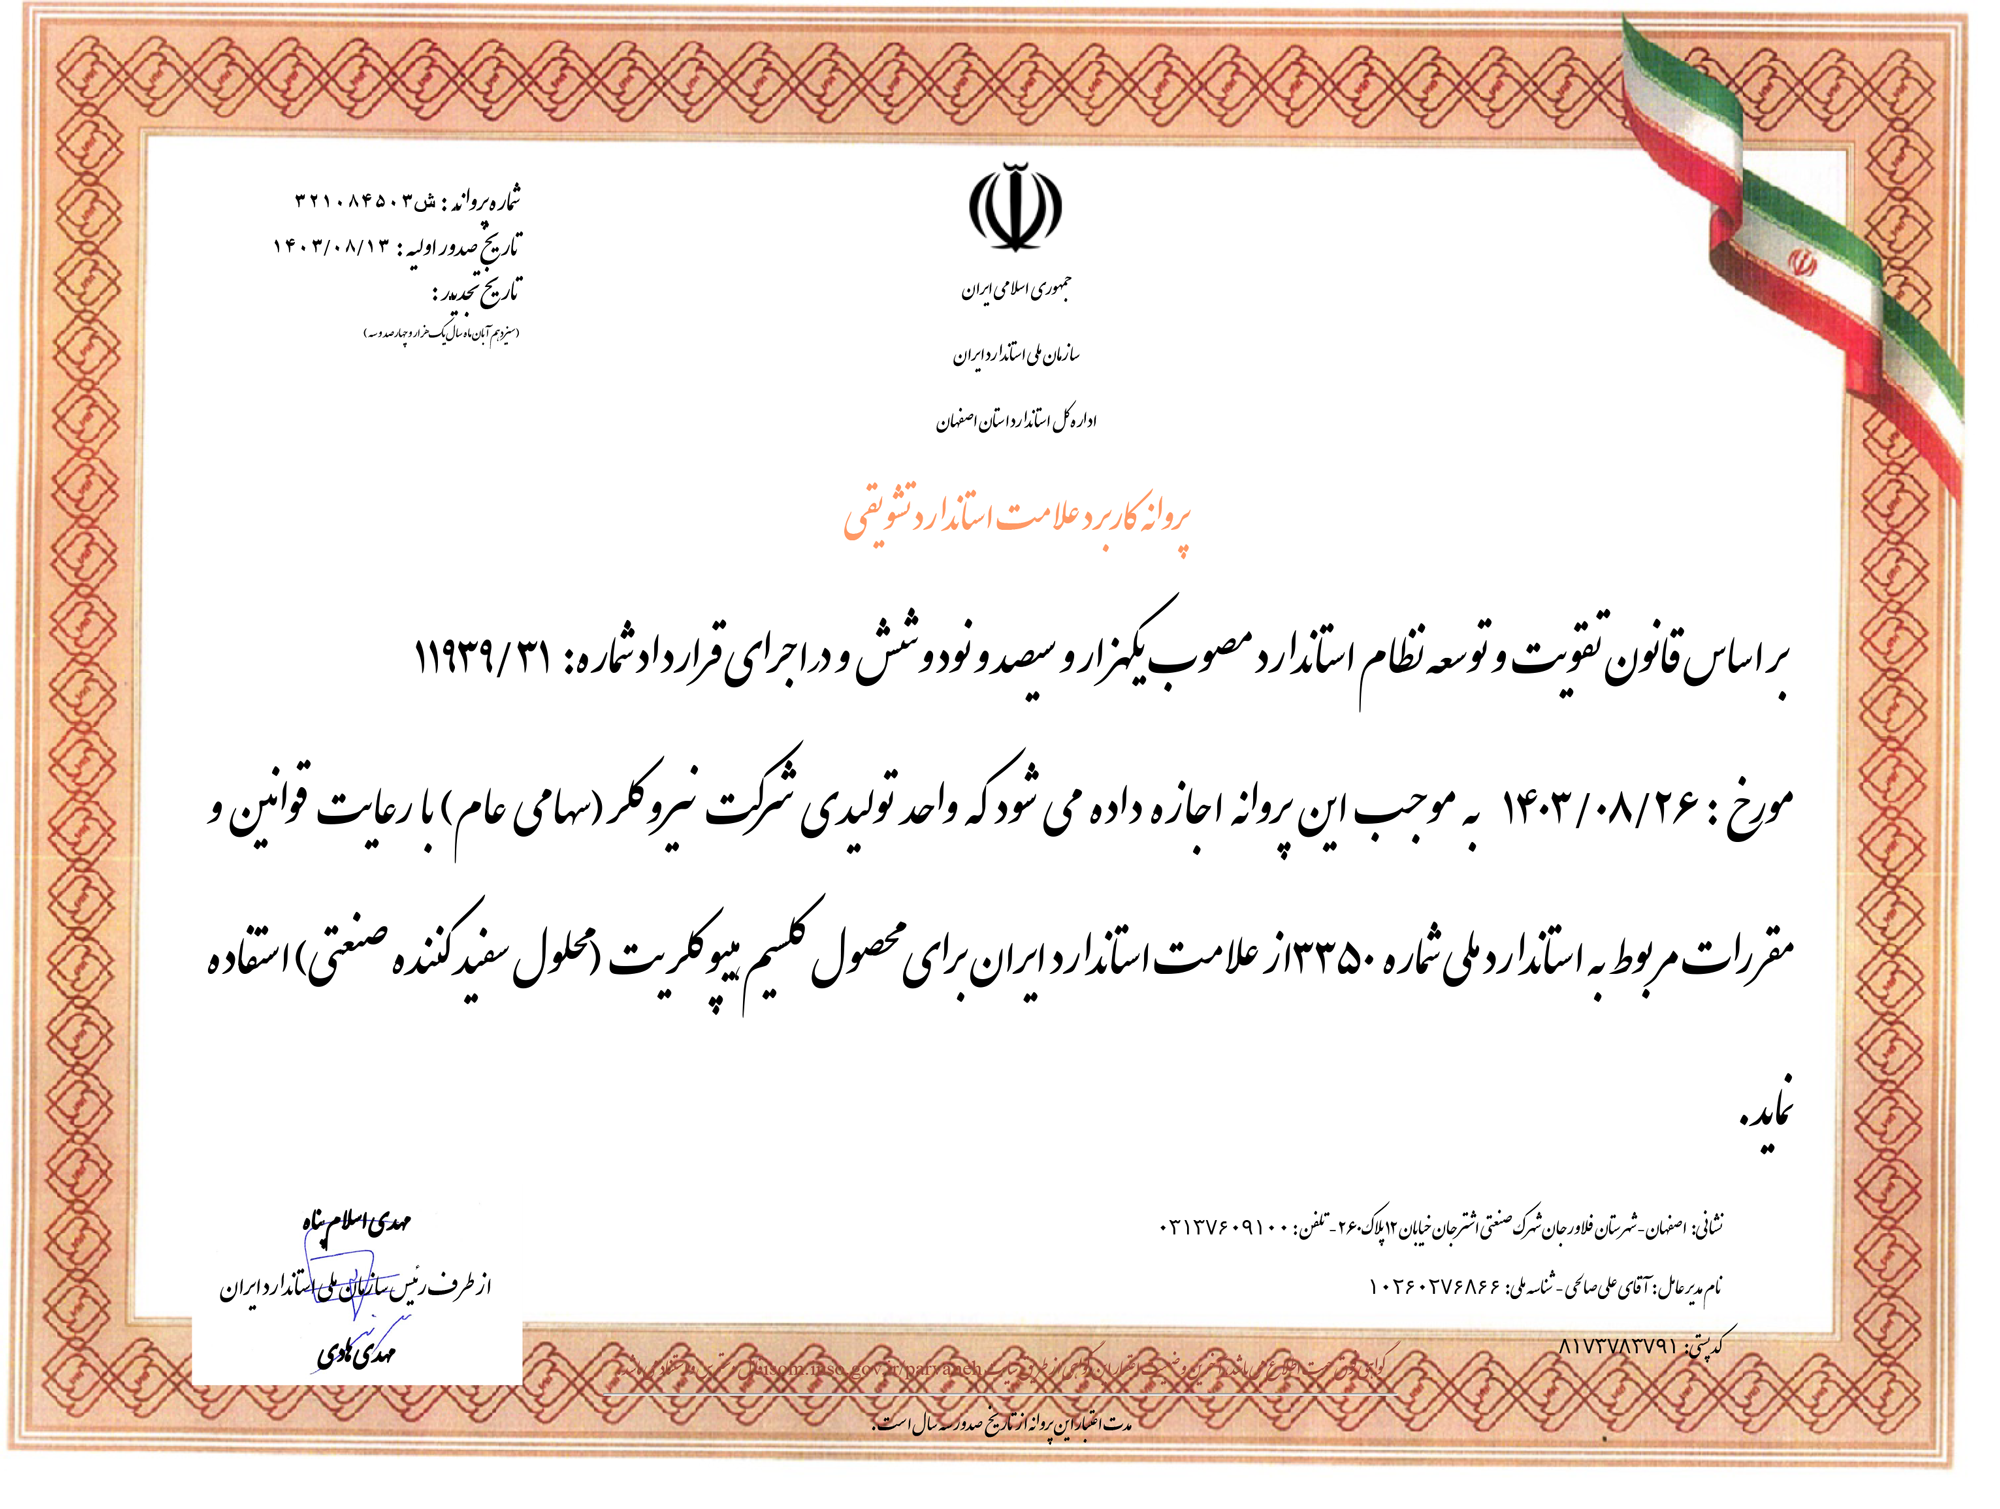 شماره پروانه : ش۳۲۱۰۸۴۵۰۳
تاریخ صدور اولیه : ۱۴۰۳/۰۸/۱۳
تاریخ تجدید :
(سیزدهم آبان ماه سال یک هزار و چهارصد و سه)
جمهوری اسلامی ایران
سازمان ملی استاندارد ایران
اداره کل استاندارد استان اصفهان
پروانه کاربرد علامت استاندارد تشویقی
بر اساس قانون تقویت و توسعه نظام استاندارد مصوب یکهزار و سیصد و نود و شش و در اجرای قرارداد شماره: ۱۱۹۳۹/۳۱
مورخ : ۱۴۰۳/۰۸/۲۶ به موجب این پروانه اجازه داده می شود که واحد تولیدی شرکت نیرو کلر (سهامی عام) با رعایت قوانین و
مقررات مربوط به استاندارد ملی شماره ۳۳۵۰از علامت استاندارد ایران برای محصول کلسیم هیپوکلریت (محلول سفید کننده صنعتی) استفاده
نماید.
نشانی: اصفهان-شهرستان فلاورجان شهرک صنعتی اشترجان خیابان ۱۲پلاک۲۶۰- تلفن: ۰۳۱۳۷۶۰۹۱۰۰
نام مدیرعامل: آقای علی صالحی - شناسه ملی: ۱۰۲۶۰۲۷۶۸۶۶
کد پستی: ۸۱۷۳۷۸۳۷۹۱
مهدی اسلام پناه
از طرف رئیس سازمان ملی استاندارد ایران
مهدی هادی
isom.inso.gov.ir/parvaneh
مدت اعتبار این پروانه از تاریخ صدور سه سال است.